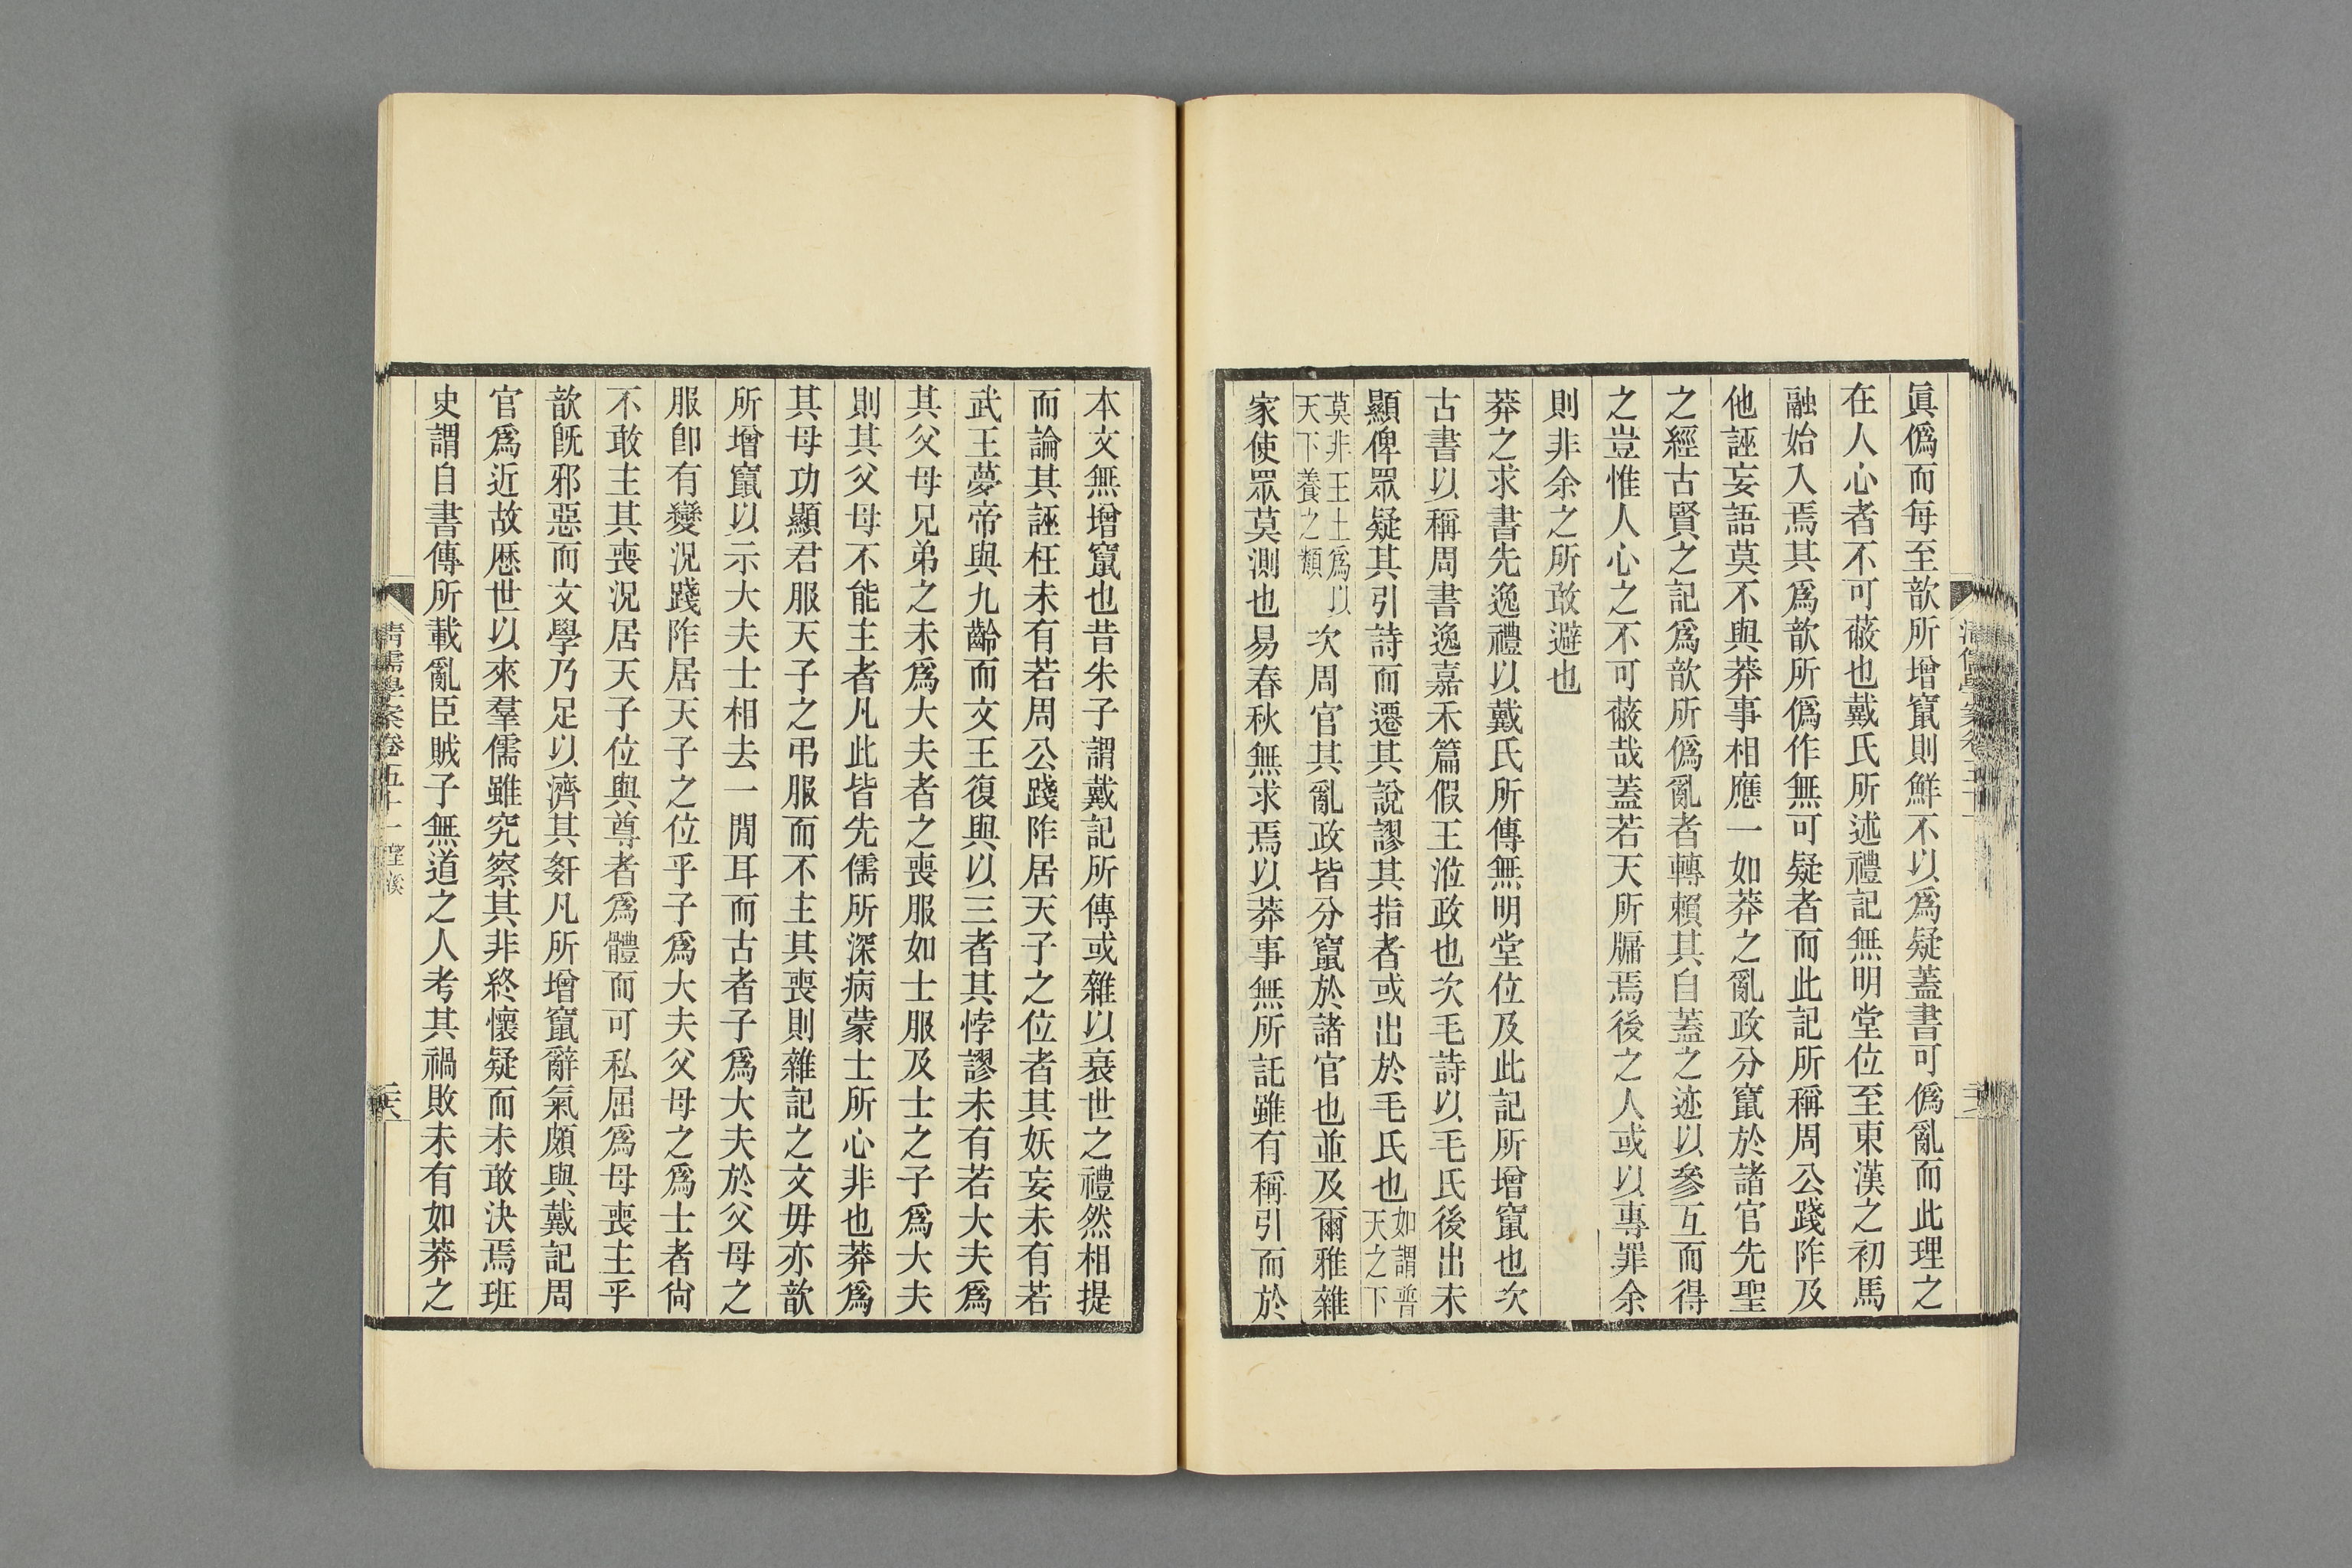 眞僞而每至歆所增竄則鮮不以爲疑蓋書可僞亂而此理之
在人心者不可蔽也戴氏所述禮記無明堂位至東漢之初馬
融始入焉其爲歆所僞作無可疑者而此記所稱周公踐阼及
他誣妄語莫不與莽事相應一如莽之亂政分竄於諸官先聖
之經古賢之記爲歆所僞亂者轉賴其自蓋之迹以參互而得
之豈惟人心之不可蔽哉蓋若天所牖焉後之人或以專罪余
則非余之所敢避也
莽之求書先逸禮以戴氏所傳無明堂位及此記所增竄也次
古書以稱周書逸嘉禾篇假王涖政也次毛詩以毛氏後出未
顯俾眾疑其引詩而遷其說謬其指者或出於毛氏也如謂普天之下
莫非王土爲以天下養之類次周官其亂政皆分竄於諸官也並及爾雅雜
家使眾莫測也易春秋無求焉以莽事無所託雖有稱引而於
本文無增竄也昔朱子謂戴記所傳或雜以衰世之禮然相提
而論其誣枉未有若周公踐阼居天子之位者其妖妄未有若
武王夢帝與九齡而文王復與以三者其悖謬未有若大夫爲
其父母兄弟之未爲大夫者之喪服如士服及士之子爲大夫
則其父母不能主者凡此皆先儒所深病蒙士所心非也莽爲
其母功顯君服天子之弔服而不主其喪則雜記之文毋亦歆
所增竄以示大夫士相去一閒耳而古者子爲大夫於父母之
服卽有變況踐阼居天子之位乎子爲大夫父母之爲士者尙
不敢主其喪況居天子位與尊者爲體而可私屈爲母喪主乎
歆旣邪惡而文學乃足以濟其姧凡所增竄辭氣頗與戴記周
官爲近故厯世以來羣儒雖究察其非終懷疑而未敢決焉班
史謂自書傳所載亂臣賊子無道之人考其禍敗未有如莽之
清儒學案卷五十一